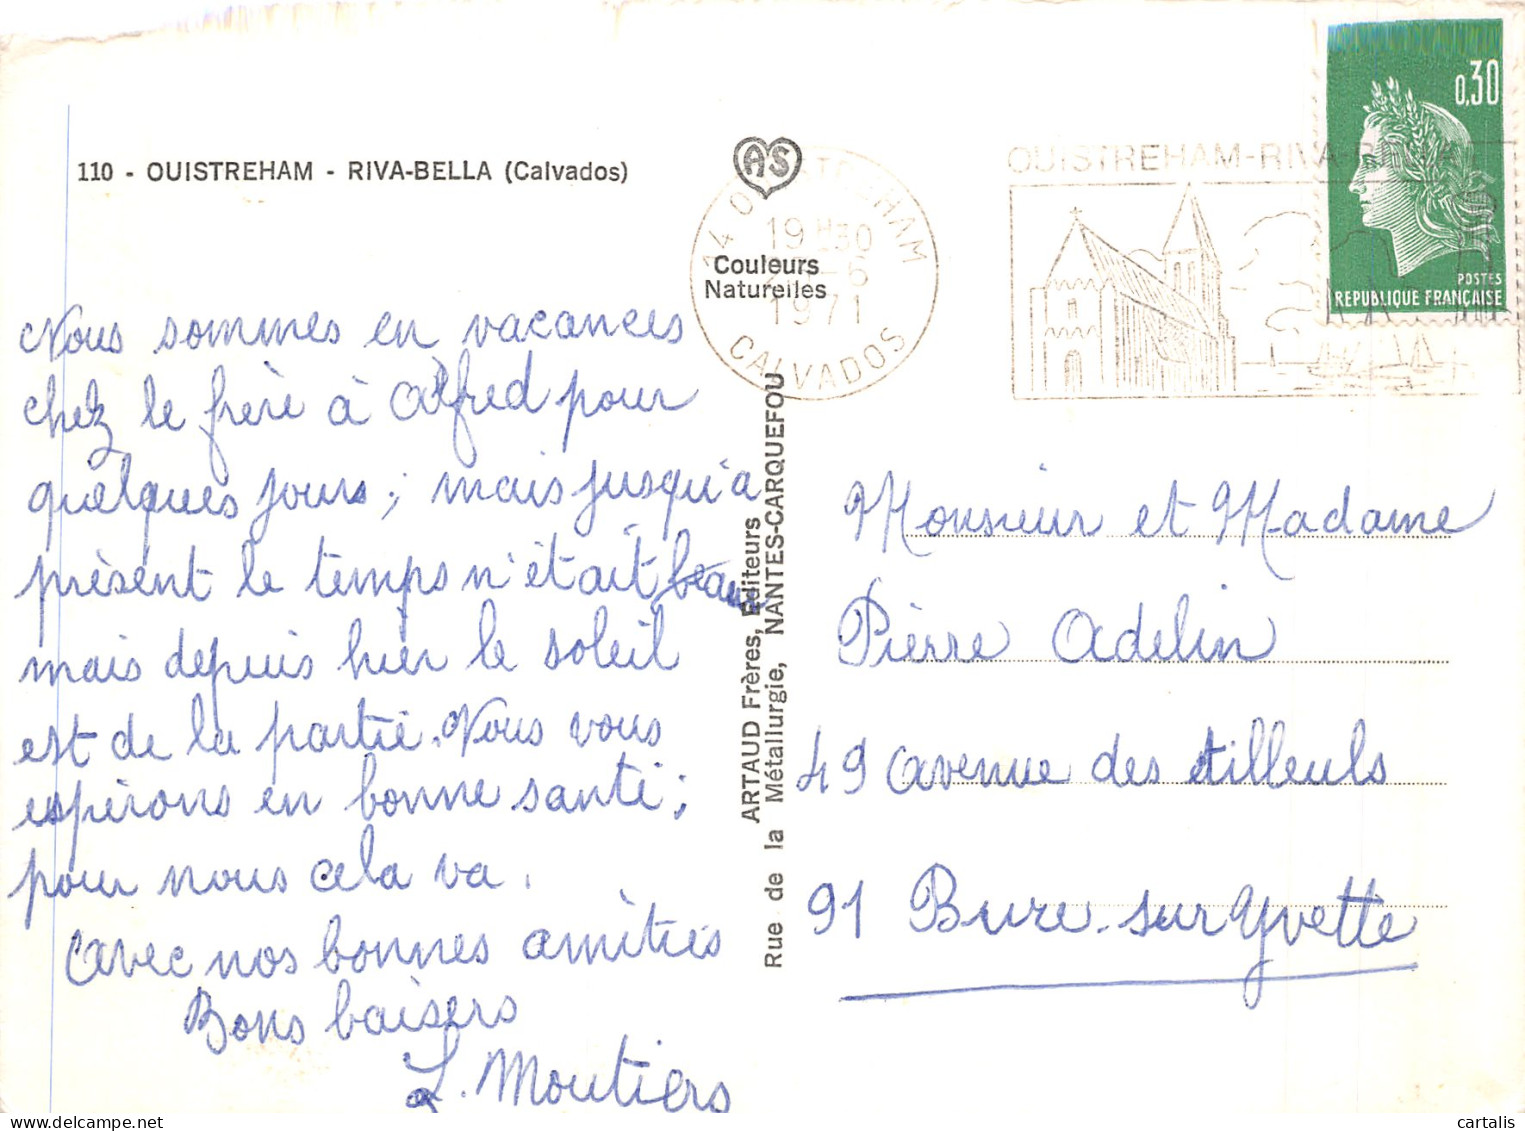 110 - OUISTREHAM - RIVA-BELLA (Calvados)
AS
Couleurs
Naturelles
14 OUISTREHAM
19 H30
-6
1971
CALVADOS
OUISTREHAM-RIVA-BELLA
0,30
POSTES
REPUBLIQUE FRANÇAISE
Nous sommes en vacances
chez le frère à Alfred pour
quelques jours ; mais jusqu'a
présent le temps n'était beau
mais depuis hier le soleil
est de la partie. Nous vous
espérons en bonne santé ;
pour nous cela va.
Avec nos bonnes amitiés
Bons baisers
L. Moutiers
ARTAUD Frères, Editeurs
Rue de la Métallurgie, NANTES-CARQUEFOU
Monsieur et Madame
Pierre Adelin
49 avenue des tilleuls
91 Bure-sur Yvette
delcampe.net
cartalis